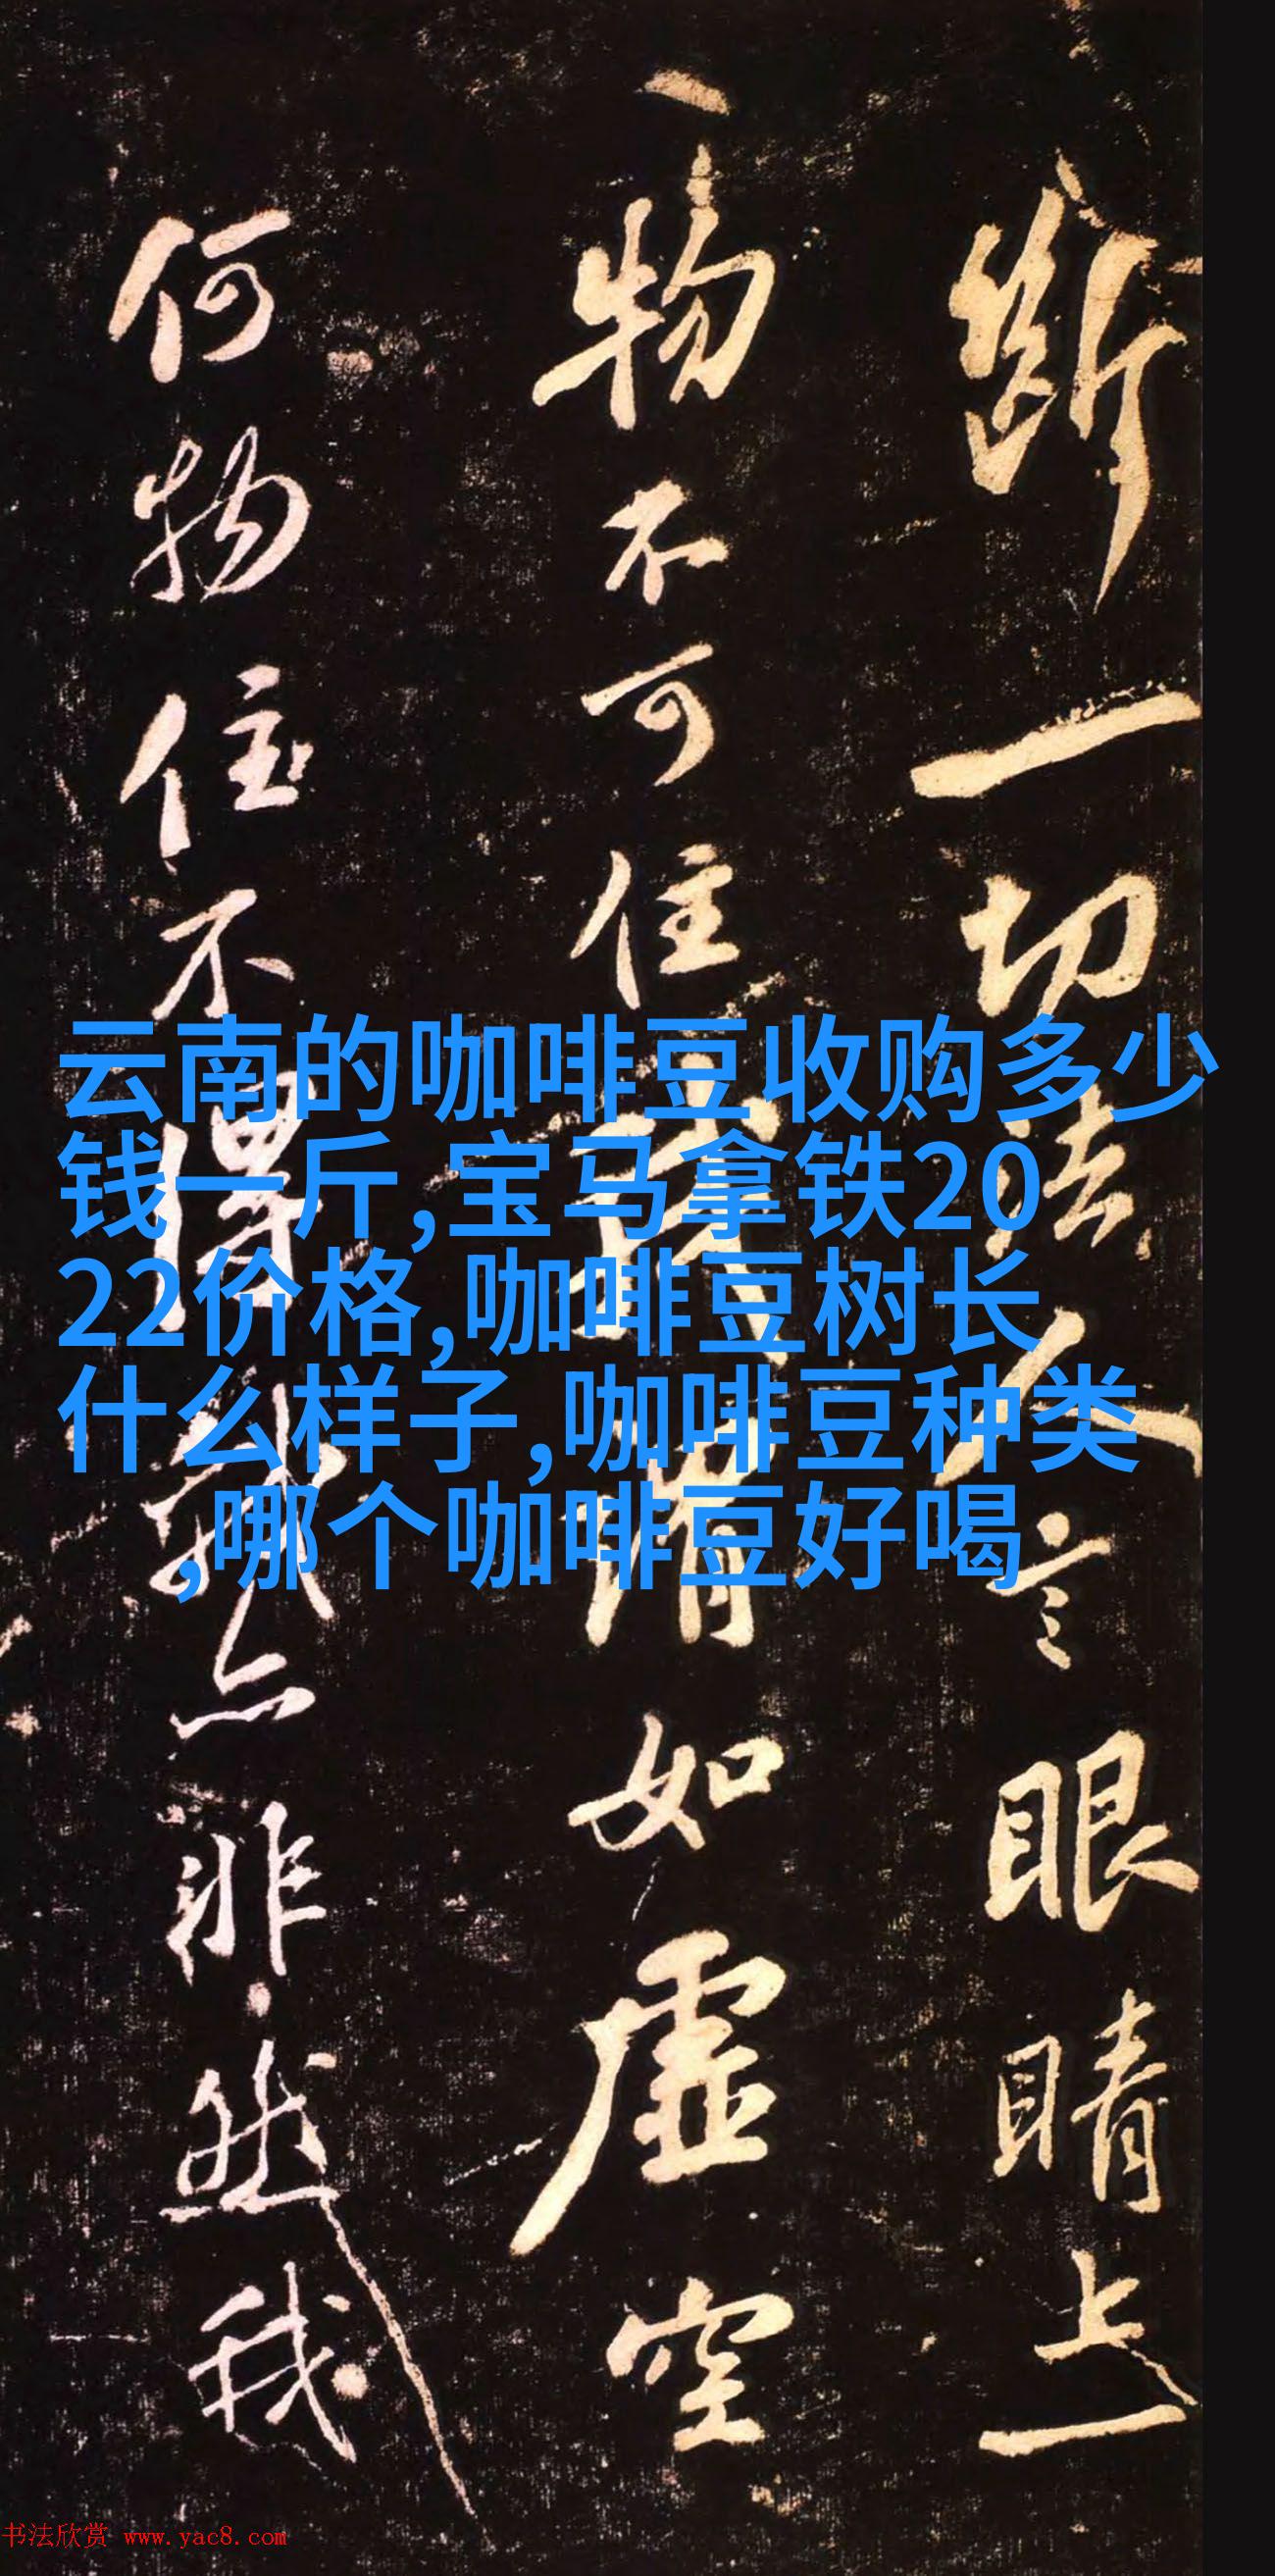 断一切法人言眼睛上一
物不可住我谓如虚空
何物住不得非然我
云南的咖啡豆收购多少
钱一斤,宝马拿铁20
22价格,咖啡豆树长
什么样子,咖啡豆种类
,哪个咖啡豆好喝
书法欣赏 www.yac8.com